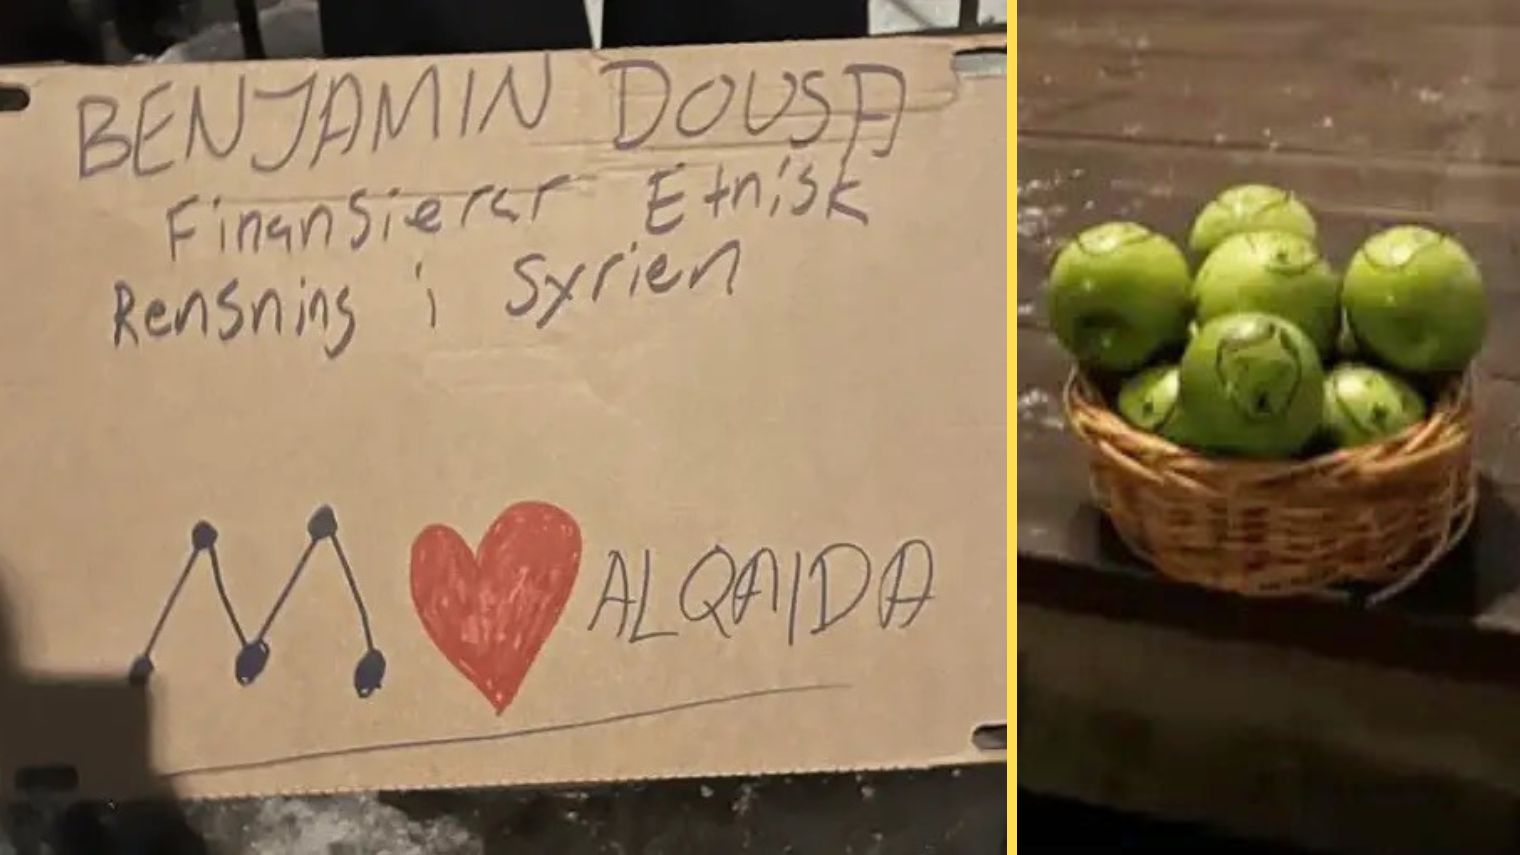 BENJAMIN DOUSA
Finansierar Etnisk
Rensning i Syrien
M ALQAIDA